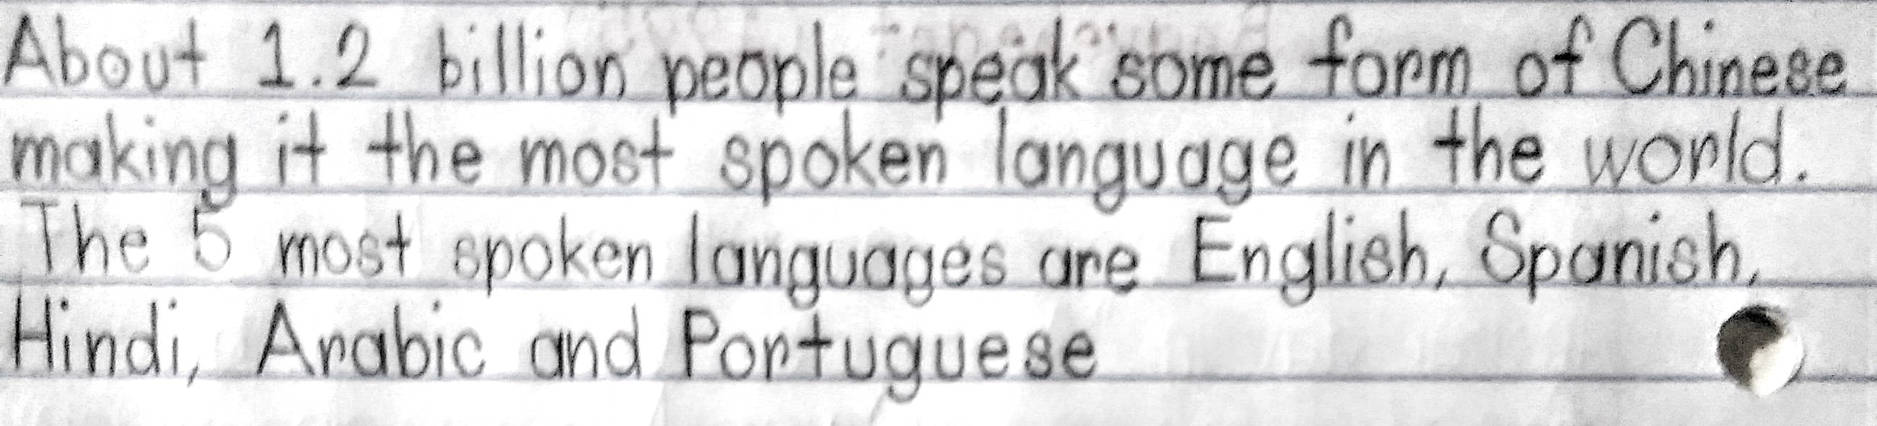 About 1.2 billion people speak some form of Chinese
making it the most spoken language in the world.
The 5 most spoken languages are English, Spanish,
Hindi, Arabic and Portuguese